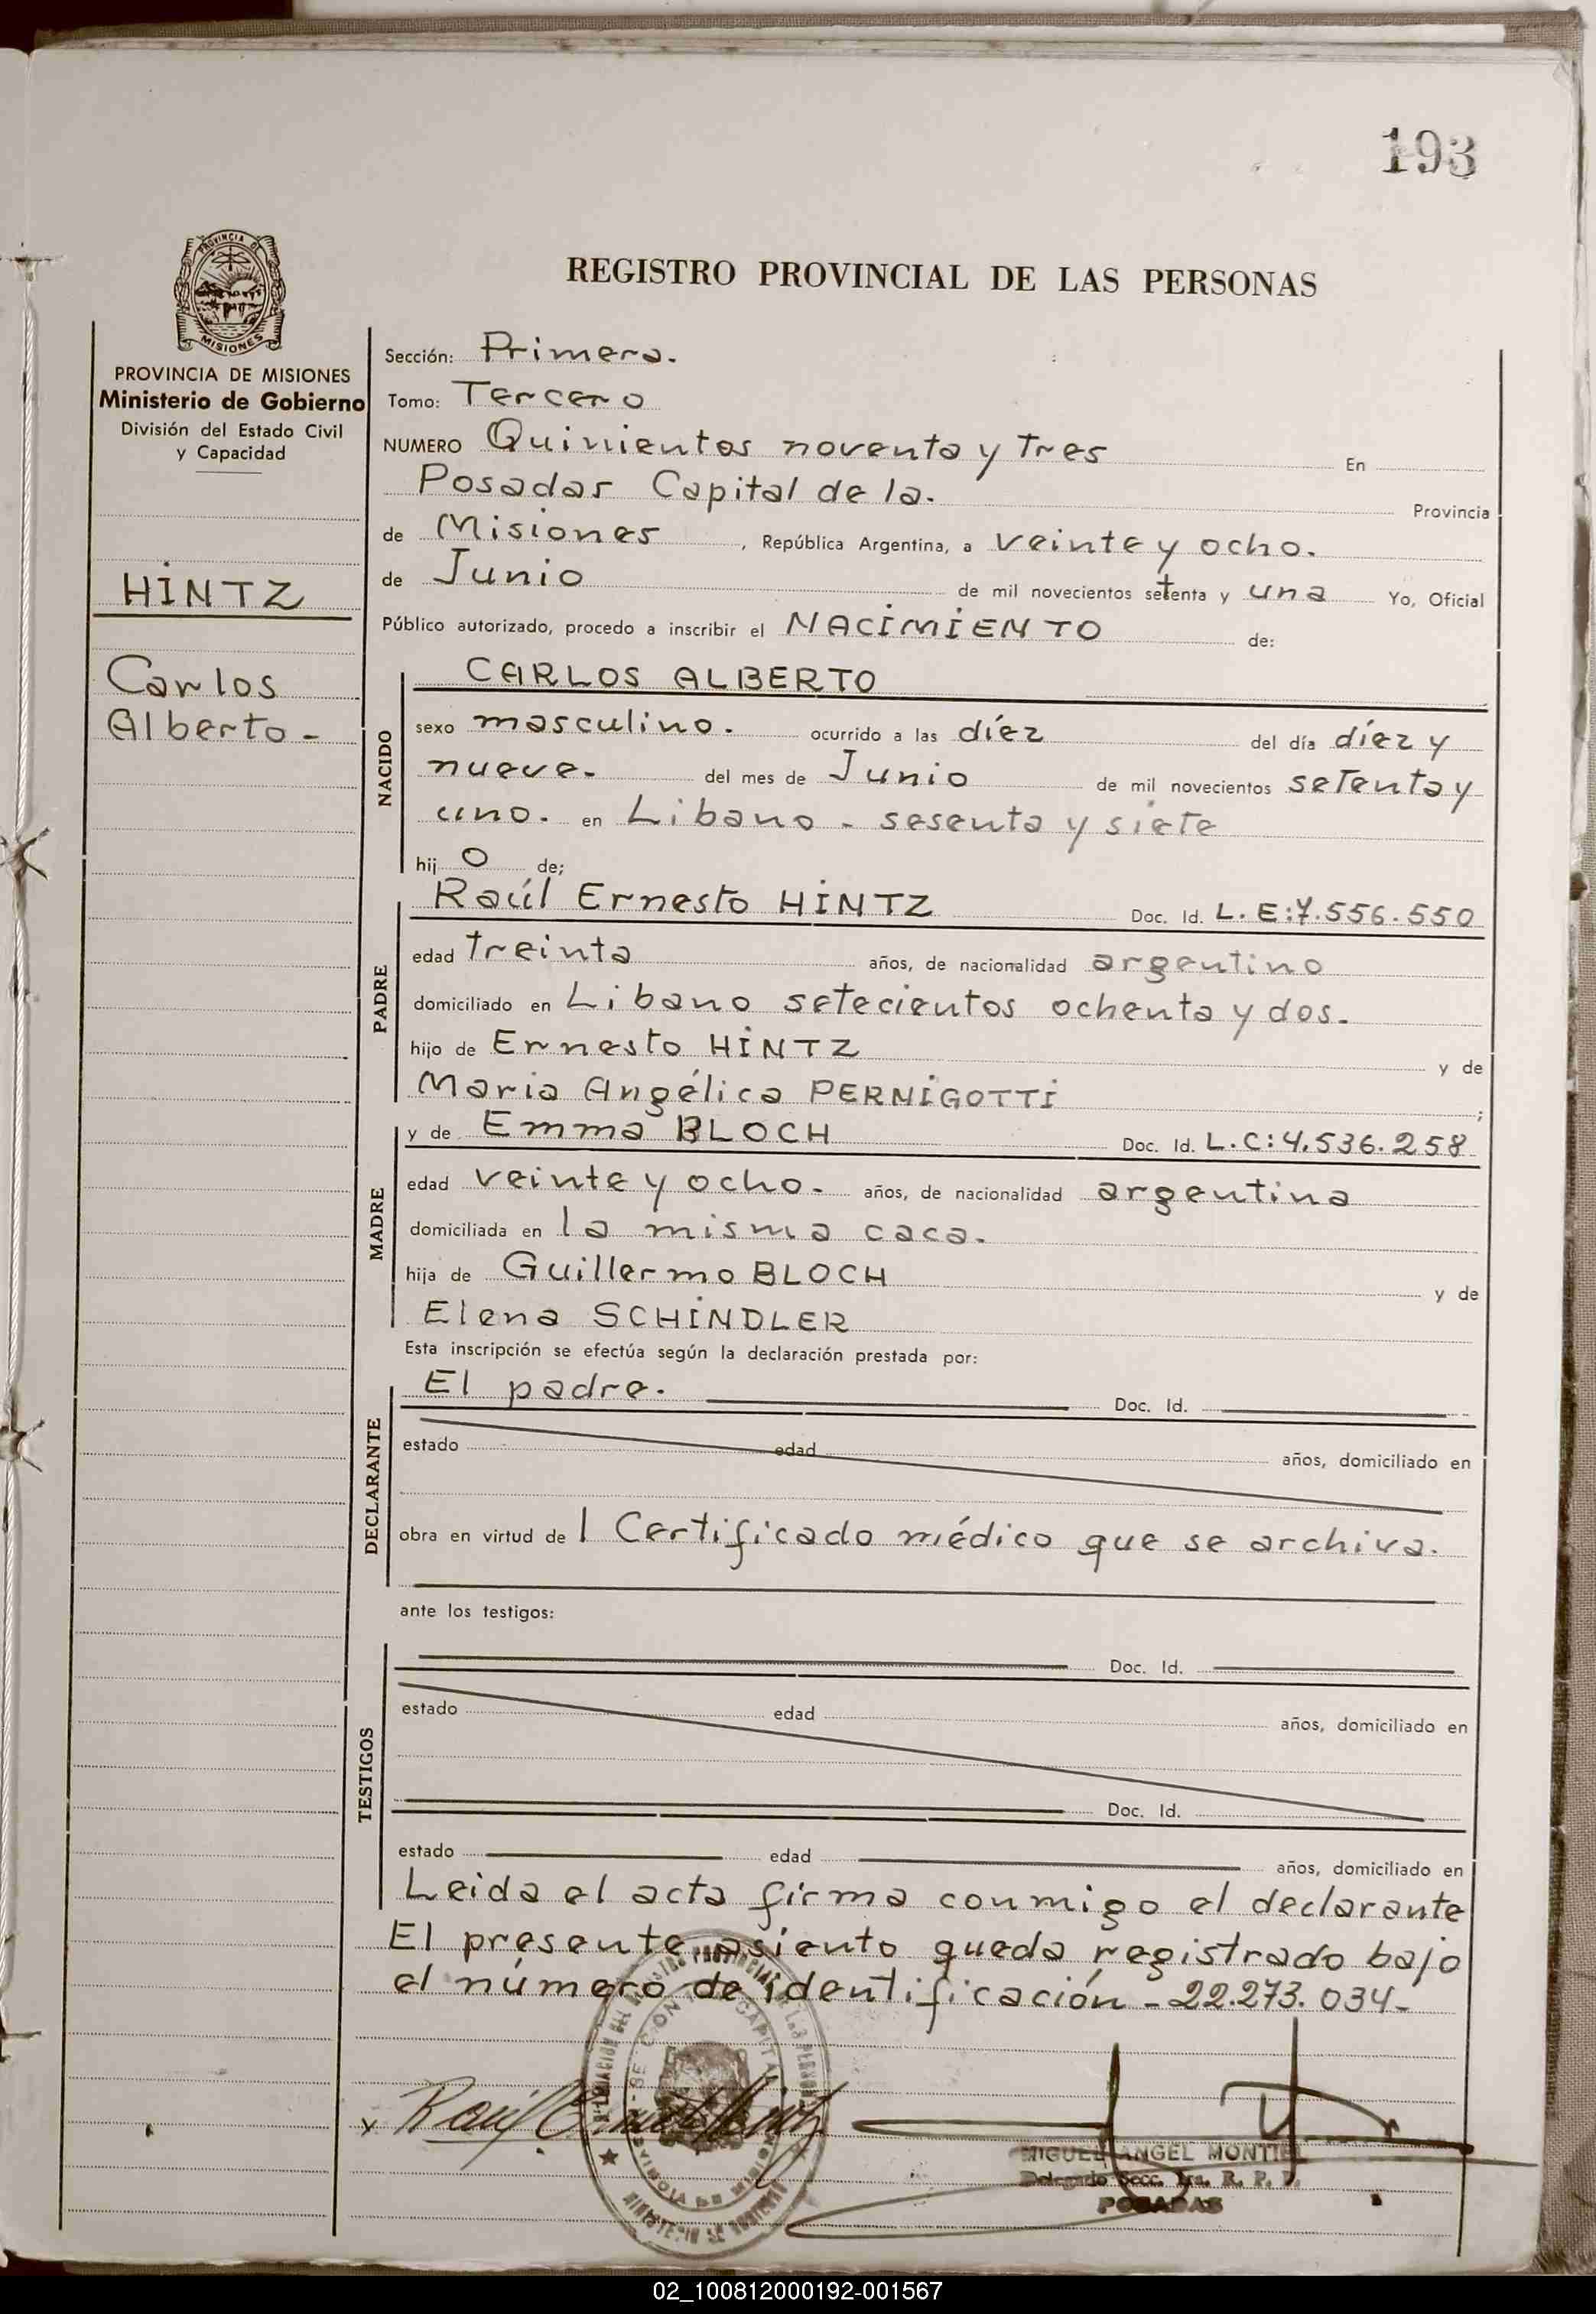 193
PROVINCIA DE
MISIONES
PROVINCIA DE MISIONES
Ministerio de Gobierno
División del Estado Civil
y Capacidad
HINTZ
Carlos
Alberto -
REGISTRO PROVINCIAL DE LAS PERSONAS
Sección: Primera.
Tomo: Tercero
NUMERO Quinientos noventa y Tres En
Posadas Capital de la. Provincia
de Misiones, República Argentina, a veinte y ocho.
de Junio de mil novecientos setenta y una Yo, Oficial
Público autorizado, procedo a inscribir el NACIMIENTO de:
NACIDO
CARLOS ALBERTO
sexo masculino. ocurrido a las díez del día díez y
nueve. del mes de Junio de mil novecientos setenta y
uno. en Libano - sesenta y siete
hij o de;
PADRE
Raúl Ernesto HINTZ Doc. Id. L. E:7.556.550
edad treinta años, de nacionalidad argentino
domiciliado en Libano setecientos ochenta y dos.
hijo de Ernesto HINTZ y de
Maria Angélica PERNIGOTTI ;
MADRE
y de Emma BLOCH Doc. Id. L.C:4.536.258
edad veinte y ocho. años, de nacionalidad argentina
domiciliada en la misma caca.
hija de Guillermo BLOCH y de
Elena SCHINDLER
Esta inscripción se efectúa según la declaración prestada por:
DECLARANTE
El padre. Doc. Id.
estado edad años, domiciliado en
obra en virtud de 1 Certificado médico que se archiva.
ante los testigos:
TESTIGOS
Doc. Id.
estado edad años, domiciliado en
Doc. Id.
estado edad años, domiciliado en
Leida el acta firma conmigo el declarante
El presente asiento queda registrado bajo
el número de identificación - 22.273.034-
x Raúl Ernesto Hintz
MIGUEL ANGEL MONTIEL
Delegado Secc. 1ra. R. P. P.
POSADAS
02_100812000192-001567